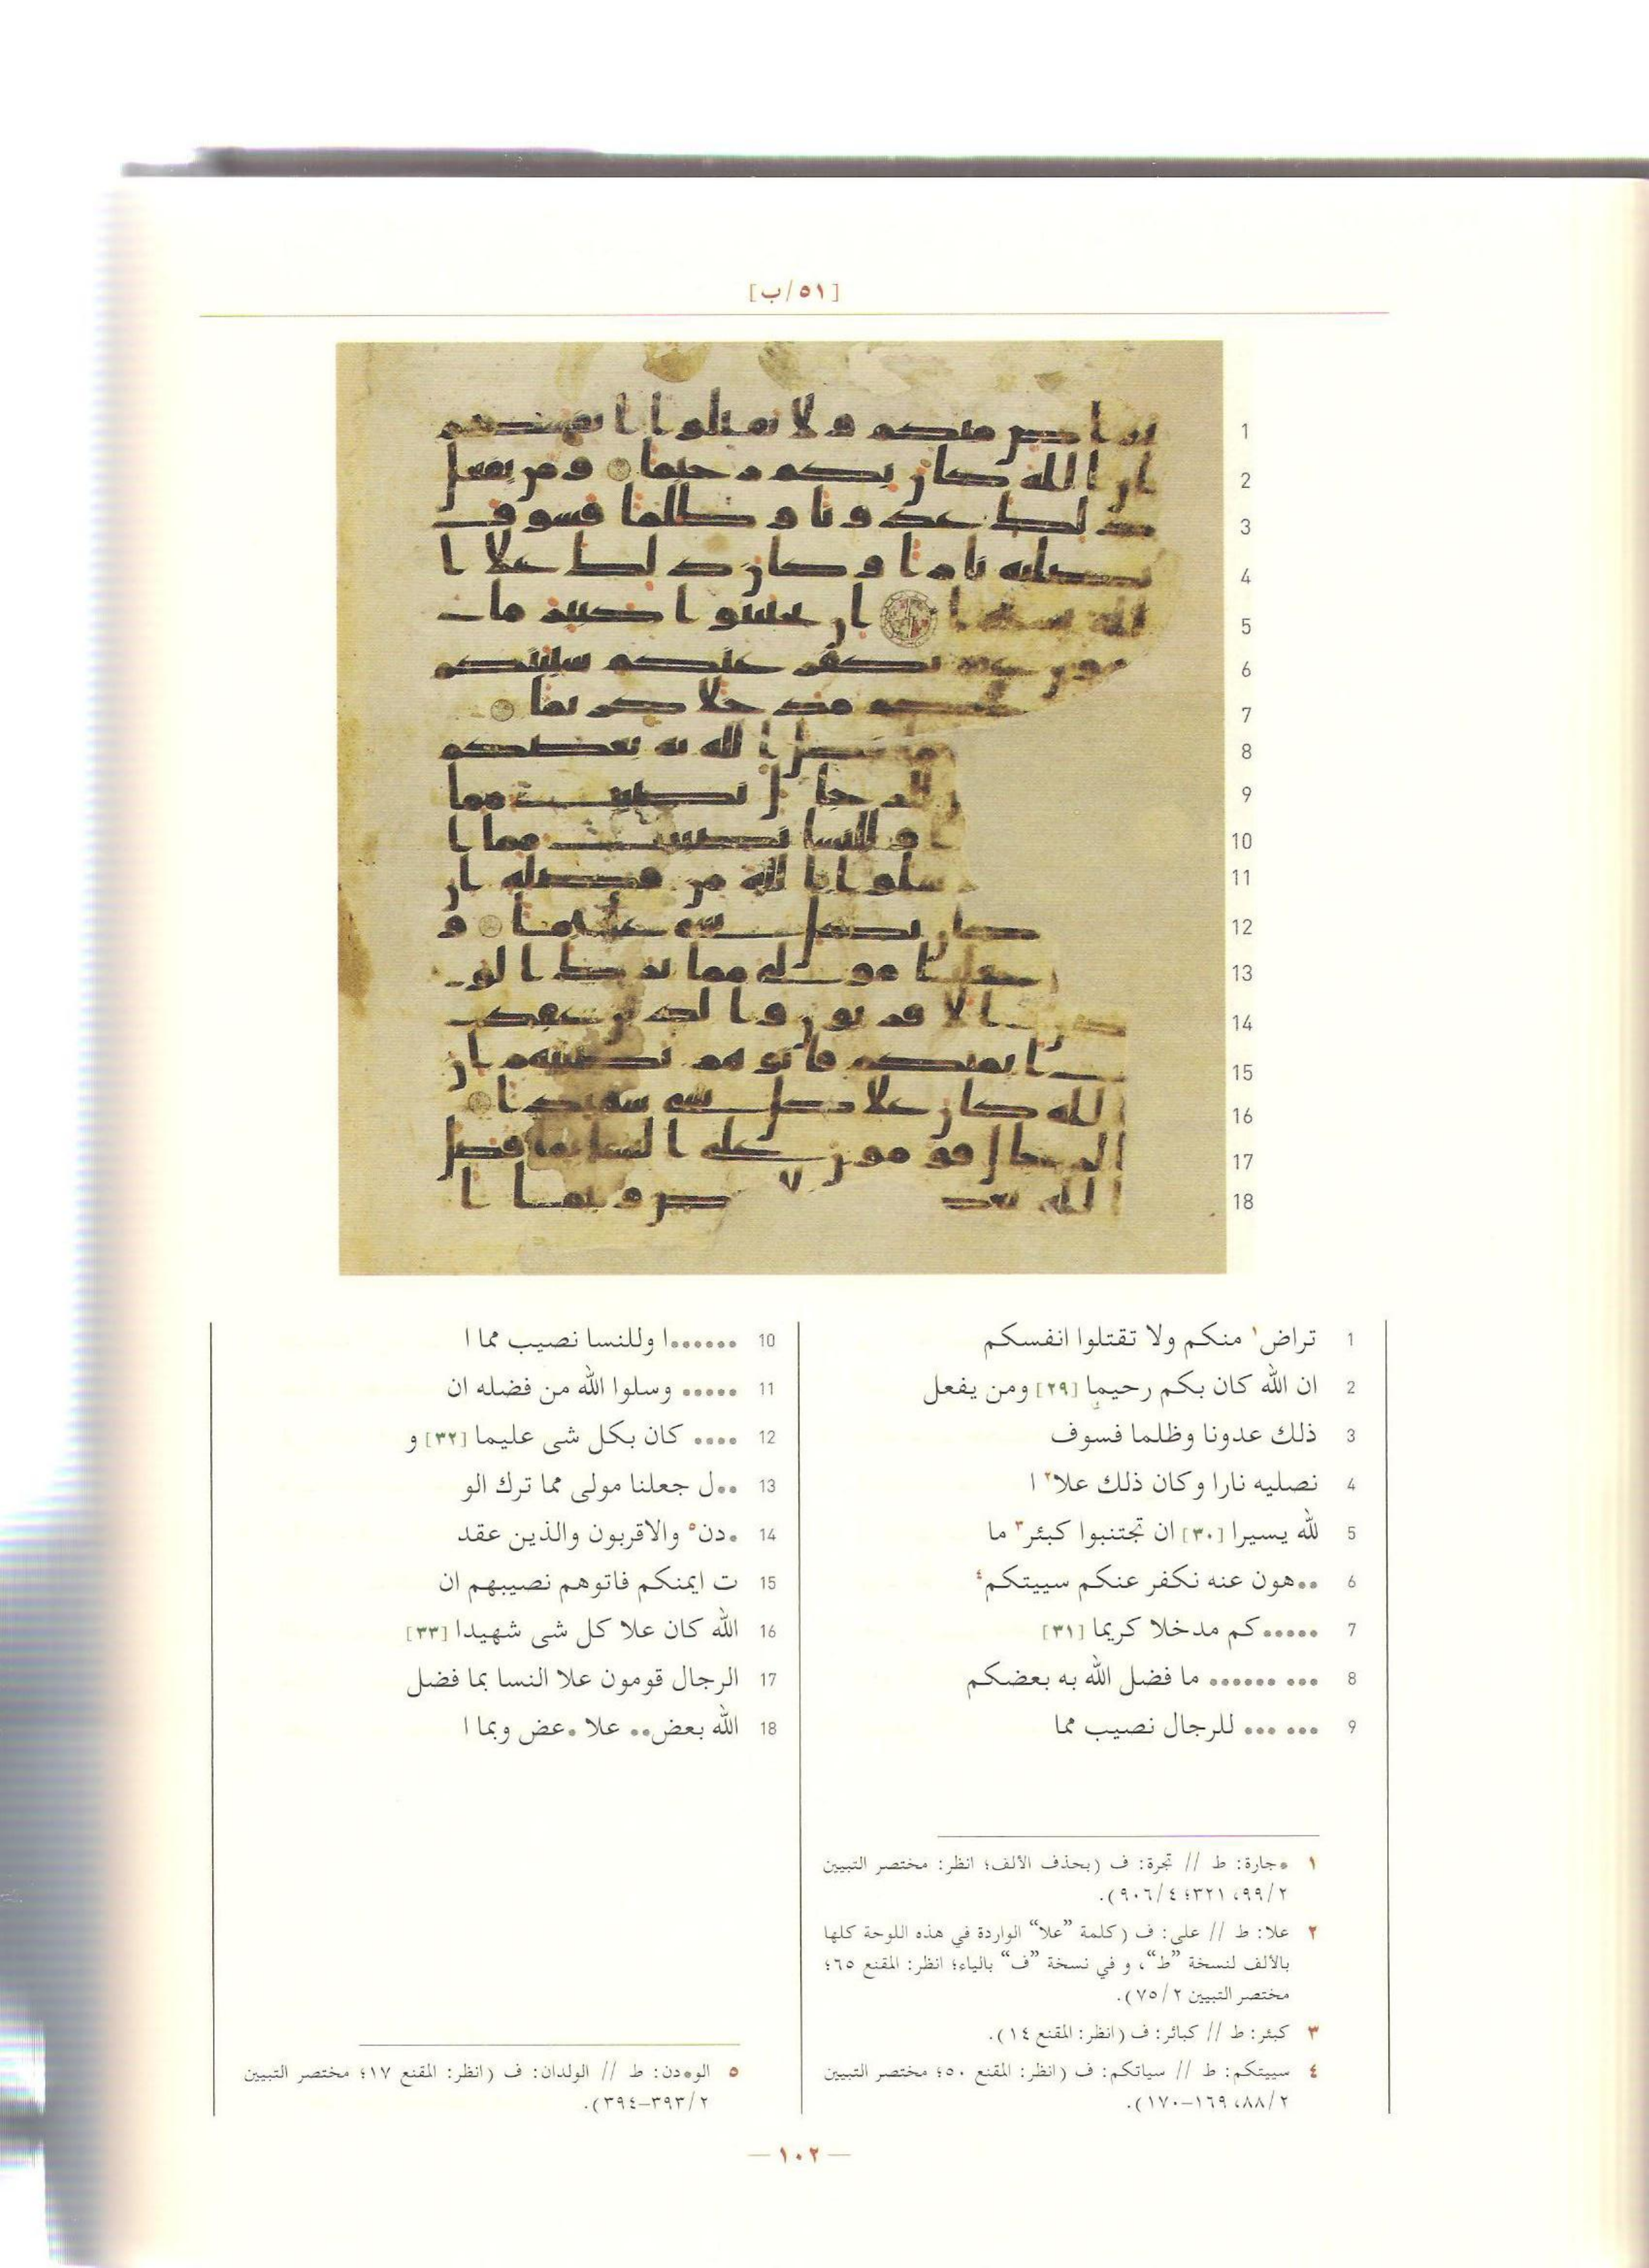 [٥١/ب]
1 تراض١ منكم ولا تقتلوا انفسكم
2 ان الله كان بكم رحيما [٢٩] ومن يفعل
3 ذلك عدونا وظلما فسوف
4 نصليه نارا وكان ذلك علا٢ ا
5 لله يسيرا [٣٠] ان تجتنبوا كبئر٣ ما
6 ••هون عنه نكفر عنكم سييتكم٤
7 •••••كم مدخلا كريما [٣١]
8 ••• •••••• ما فضل الله به بعضكم
9 ••• ••• للرجال نصيب مما
10 ••••••ا وللنسا نصيب مما ا
11 ••••• وسلوا الله من فضله ان
12 •••• كان بكل شى عليما [٣٢] و
13 ••ل جعلنا مولى مما ترك الو
14 •دن٥ والاقربون والذين عقد
15 ت ايمنكم فاتوهم نصيبهم ان
16 الله كان علا كل شى شهيدا [٣٣]
17 الرجال قومون علا النسا بما فضل
18 الله بعض•• علا •عض وبما ا
١ •جارة: ط // تجرة: ف (بحذف الألف؛ انظر: مختصر التبيين
٢/٩٩، ٣٢١؛ ٤/٩٠٦).
٢ علا: ط // على: ف (كلمة ”علا“ الواردة في هذه اللوحة كلها
بالألف لنسخة ”ط“، و في نسخة ”ف“ بالياء؛ انظر: المقنع ٦٥؛
مختصر التبيين ٢/٧٥).
٣ كبئر: ط // كبائر: ف (انظر: المقنع ١٤).
٤ سييتكم: ط // سياتكم: ف (انظر: المقنع ٥٠؛ مختصر التبيين
٢/٨٨، ١٦٩–١٧٠).
٥ الو•دن: ط // الولدان: ف (انظر: المقنع ١٧؛ مختصر التبيين
٢/٣٩٣–٣٩٤).
— ١٠٢ —